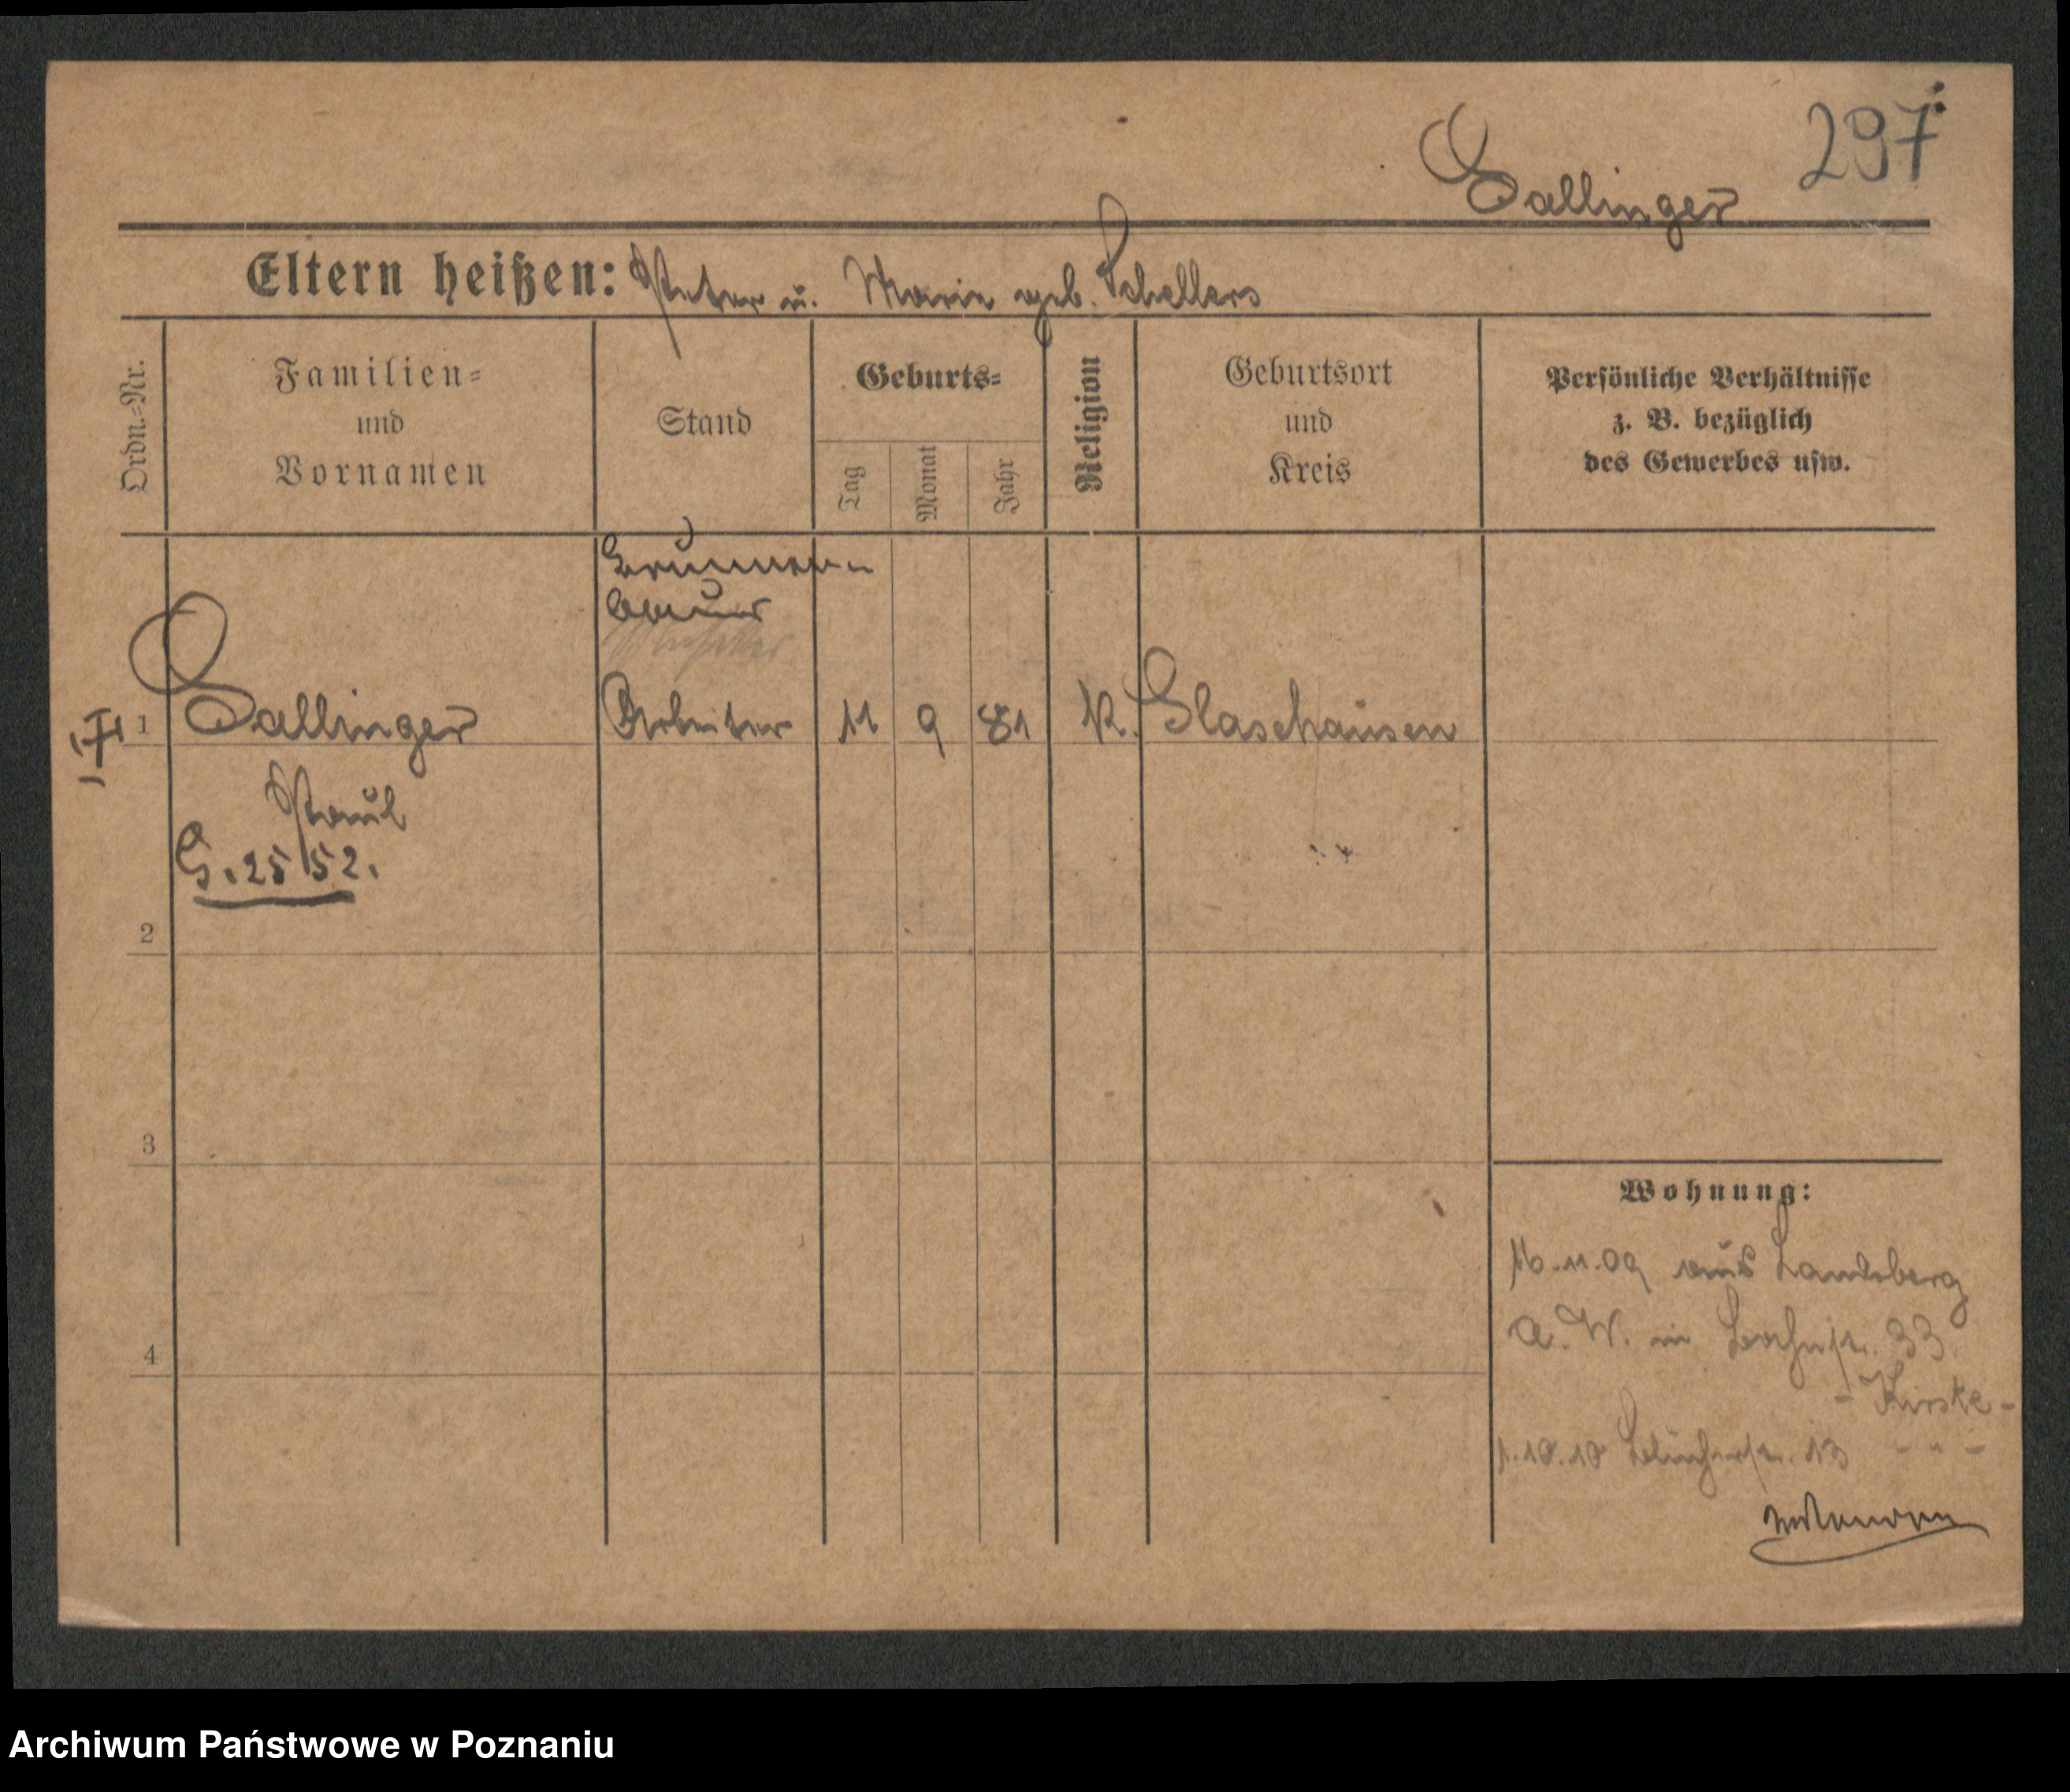 297
Sallinger
Eltern heißen: Peter u. Marie geb. Schellers
Ordn.-Nr.
Familien-
und
Vornamen
Stand
Geburts-
Tag
Monat
Jahr
Religion
Geburtsort
und
Kreis
Persönliche Verhältnisse
z. B. bezüglich
des Gewerbes usw.
Brunnen
bauer
1 Sallinger Arbeiter 11 9 81 K. Glasehausen
Paul
G. 2552.
2
3
4
Wohnung:
16.11.09 aus Landsberg
a. W. in Bahnstr. 33
- Kirste -
1.10.10 Blücherstr. 13 - " -
Archiwum Państwowe w Poznaniu